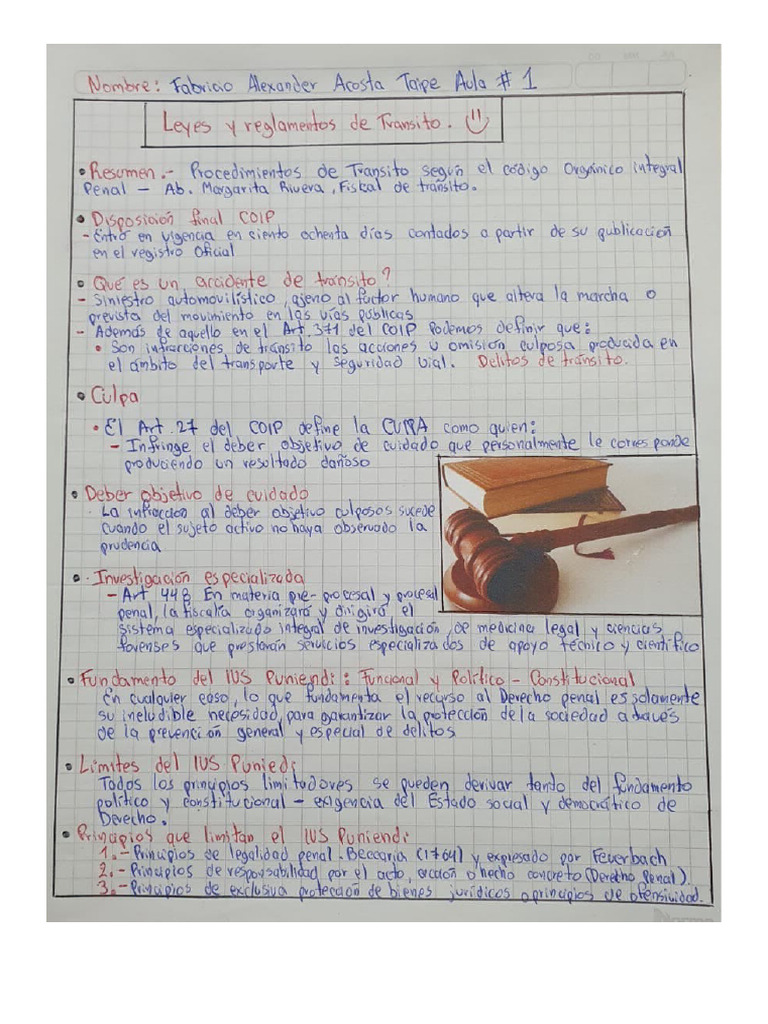 Nombre: Fabricio Alexander Acosta Taipe Aula # 1
Leyes y reglamentos de Transito.
• Resumen.- Procedimientos de Transito según el código Orgánico integral
Penal - Ab. Margarita Rivera, Fiskal de tránsito.
• Disposición final COIP
- Entró en vigencia en ciento ochenta días contados a partir de su publicación
en el registro Oficial
• Qué es un accidente de transito?
- Siniestro automovilístico, ajeno al factor humano que altera la marcha o
prevista del movimiento en las vías públicas
- Además de aquello en el Art. 371 del COIP Podemos definir que:
• Son infracciones de tránsito las acciones u omisión culposa producida en
el ámbito del transporte y seguridad vial. Delitos de tránsito.
• Culpa
• El Art. 27 del COIP define la CULPA como quien:
- Infringe el deber objetivo de cuidado que personalmente le corresponde
produciendo un resultado dañoso
• Deber objetivo de cuidado
- La infracción al deber objetivo culposos sucede
cuando el sujeto activo no haya observado la
prudencia
• Investigación especializada
- Art 448 En materia pre-procesal y procesal
penal, la fiscalía organizará y dirigirá el
sistema especializado integral de investigación, de medicina legal y ciencias
forenses que prestarán servicios especializados de apoyo técnico y científico
• Fundamento del IUS Puniendi: Funcional y Político - Constitucional
En cualquier caso, lo que fundamenta el recurso al Derecho penal es solamente
su ineludible necesidad, para garantizar la protección de la sociedad a través
de la prevención general y especial de delitos
• Límites del IUS Puniedi
Todos los principios limitadores se pueden derivar tanto del fundamento
político y constitucional - exigencia del Estado social y democrático de
Derecho.
• Principios que limitan el IUS Puniendi
1.- Principios de legalidad penal. Beccaria (1764) y expresado por Feuerbach
2.- Principios de responsabilidad por el acto, acción o hecho concreto (Derecho Penal).
3.- Principios de exclusiva protección de bienes jurídicos o principios de ofensividad.